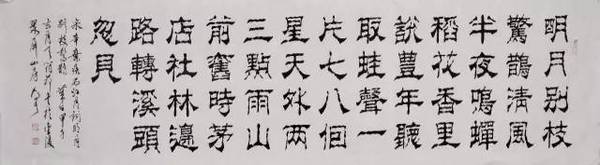 明月别枝
驚鵲清風
半夜鳴蟬
稻花香里
說豊年聽
取蛙聲一
片七八個
星天外两
三點雨山
前舊時茅
店社林邊
路轉溪頭
忽見
辛棄疾西江月詞
别枝驚鵲